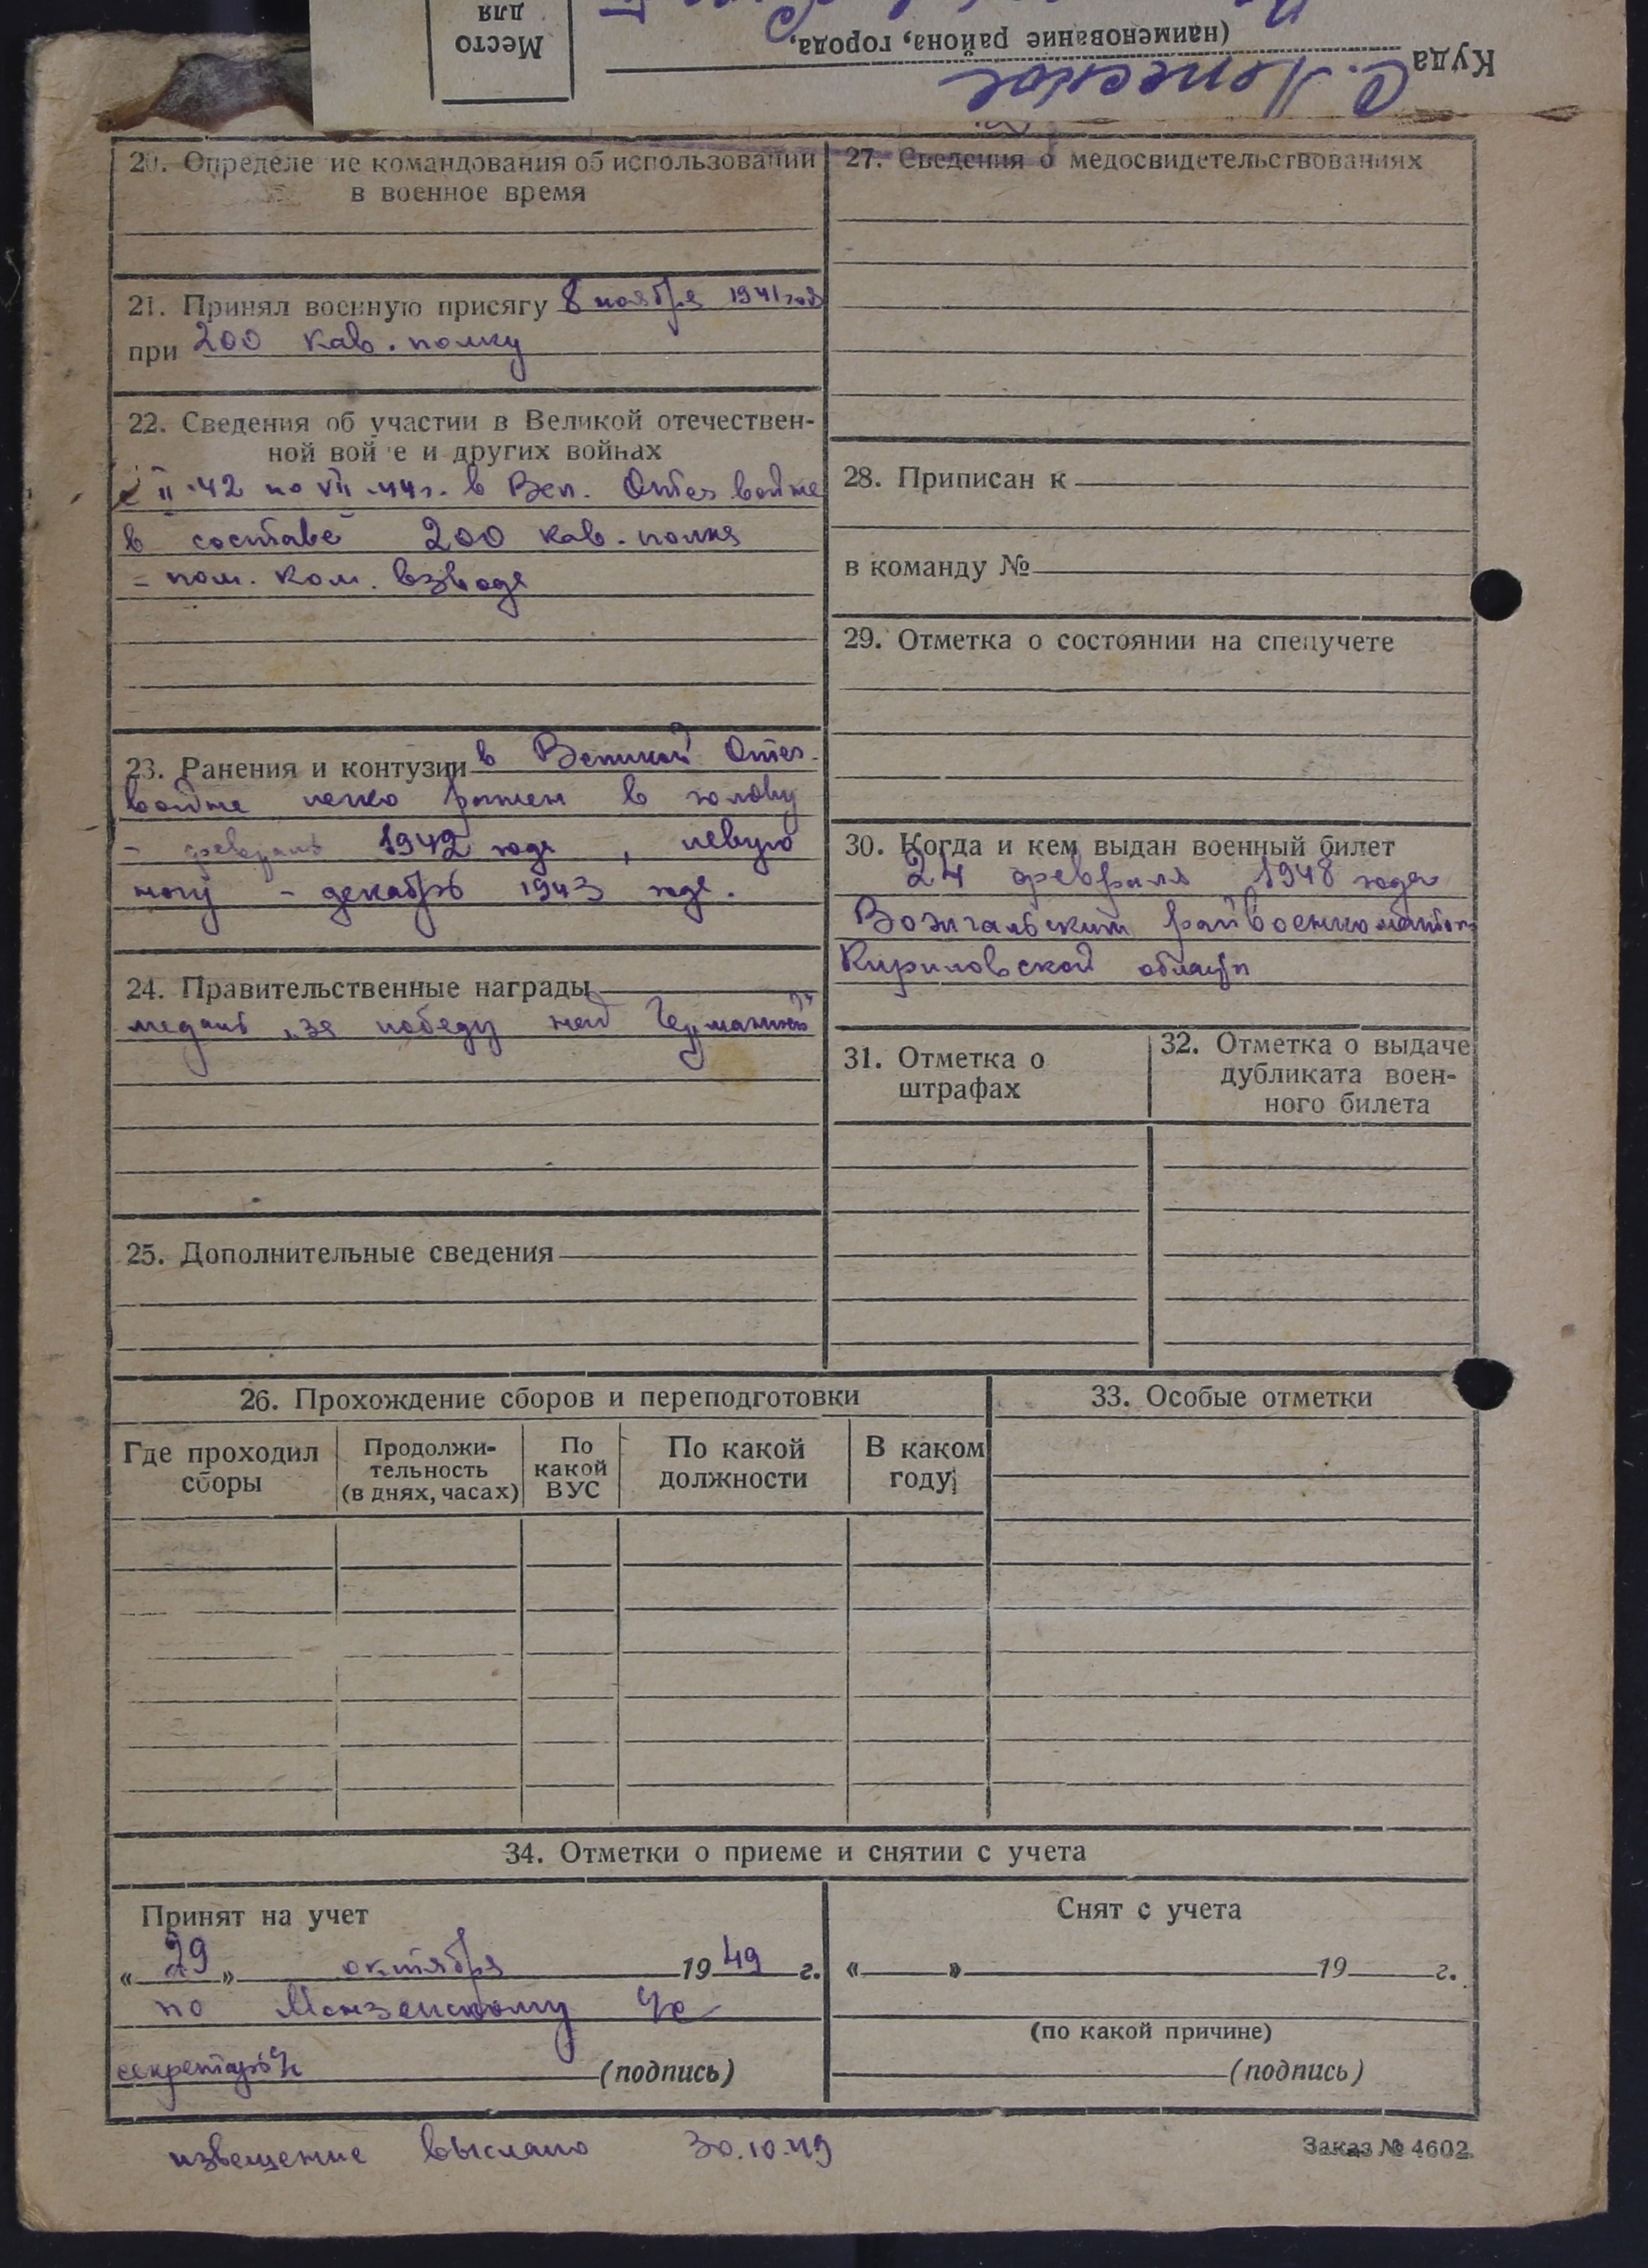 Место
для
(наименование района, города,
Куда
20. Определе ие командования об использовании
в военное время
21. Принял военную присягу 8 ноября 1941 года
при 200 кав. полку
22. Сведения об участии в Великой отечествен-
ной вой е и других войнах
с II.42 по VII.44г. в Вел. Отеч войне
в составе 200 кав. полка
- пом. ком. взвода
23. Ранения и контузии в Великой Отеч.
войне легко ранен в голову
- февраль 1942 года, левую
ногу - декабрь 1943 года.
24. Правительственные награды
медаль „за победу над Германией"
25. Дополнительные сведения
27. Сведения о медосвидетельствованиях
28. Приписан к
в команду №
29. Отметка о состоянии на спецучете
30. Когда и кем выдан военный билет
24 февраля 1948 года
Вожгальским райвоенкоматом
Кировской области
31. Отметка о
штрафах
32. Отметка о выдаче
дубликата воен-
ного билета
26. Прохождение сборов и переподготовки
Где проходил
сборы
Продолжи-
тельность
(в днях, часах)
По
какой
ВУС
По какой
должности
В каком
году
33. Особые отметки
34. Отметки о приеме и снятии с учета
Принят на учет
« 29 » октября 1949 г.
по Монзенскому
секретарь (подпись)
Снят с учета
« » 19 г.
(по какой причине)
(подпись)
извещение выслано 30.10.49
Заказ № 4602